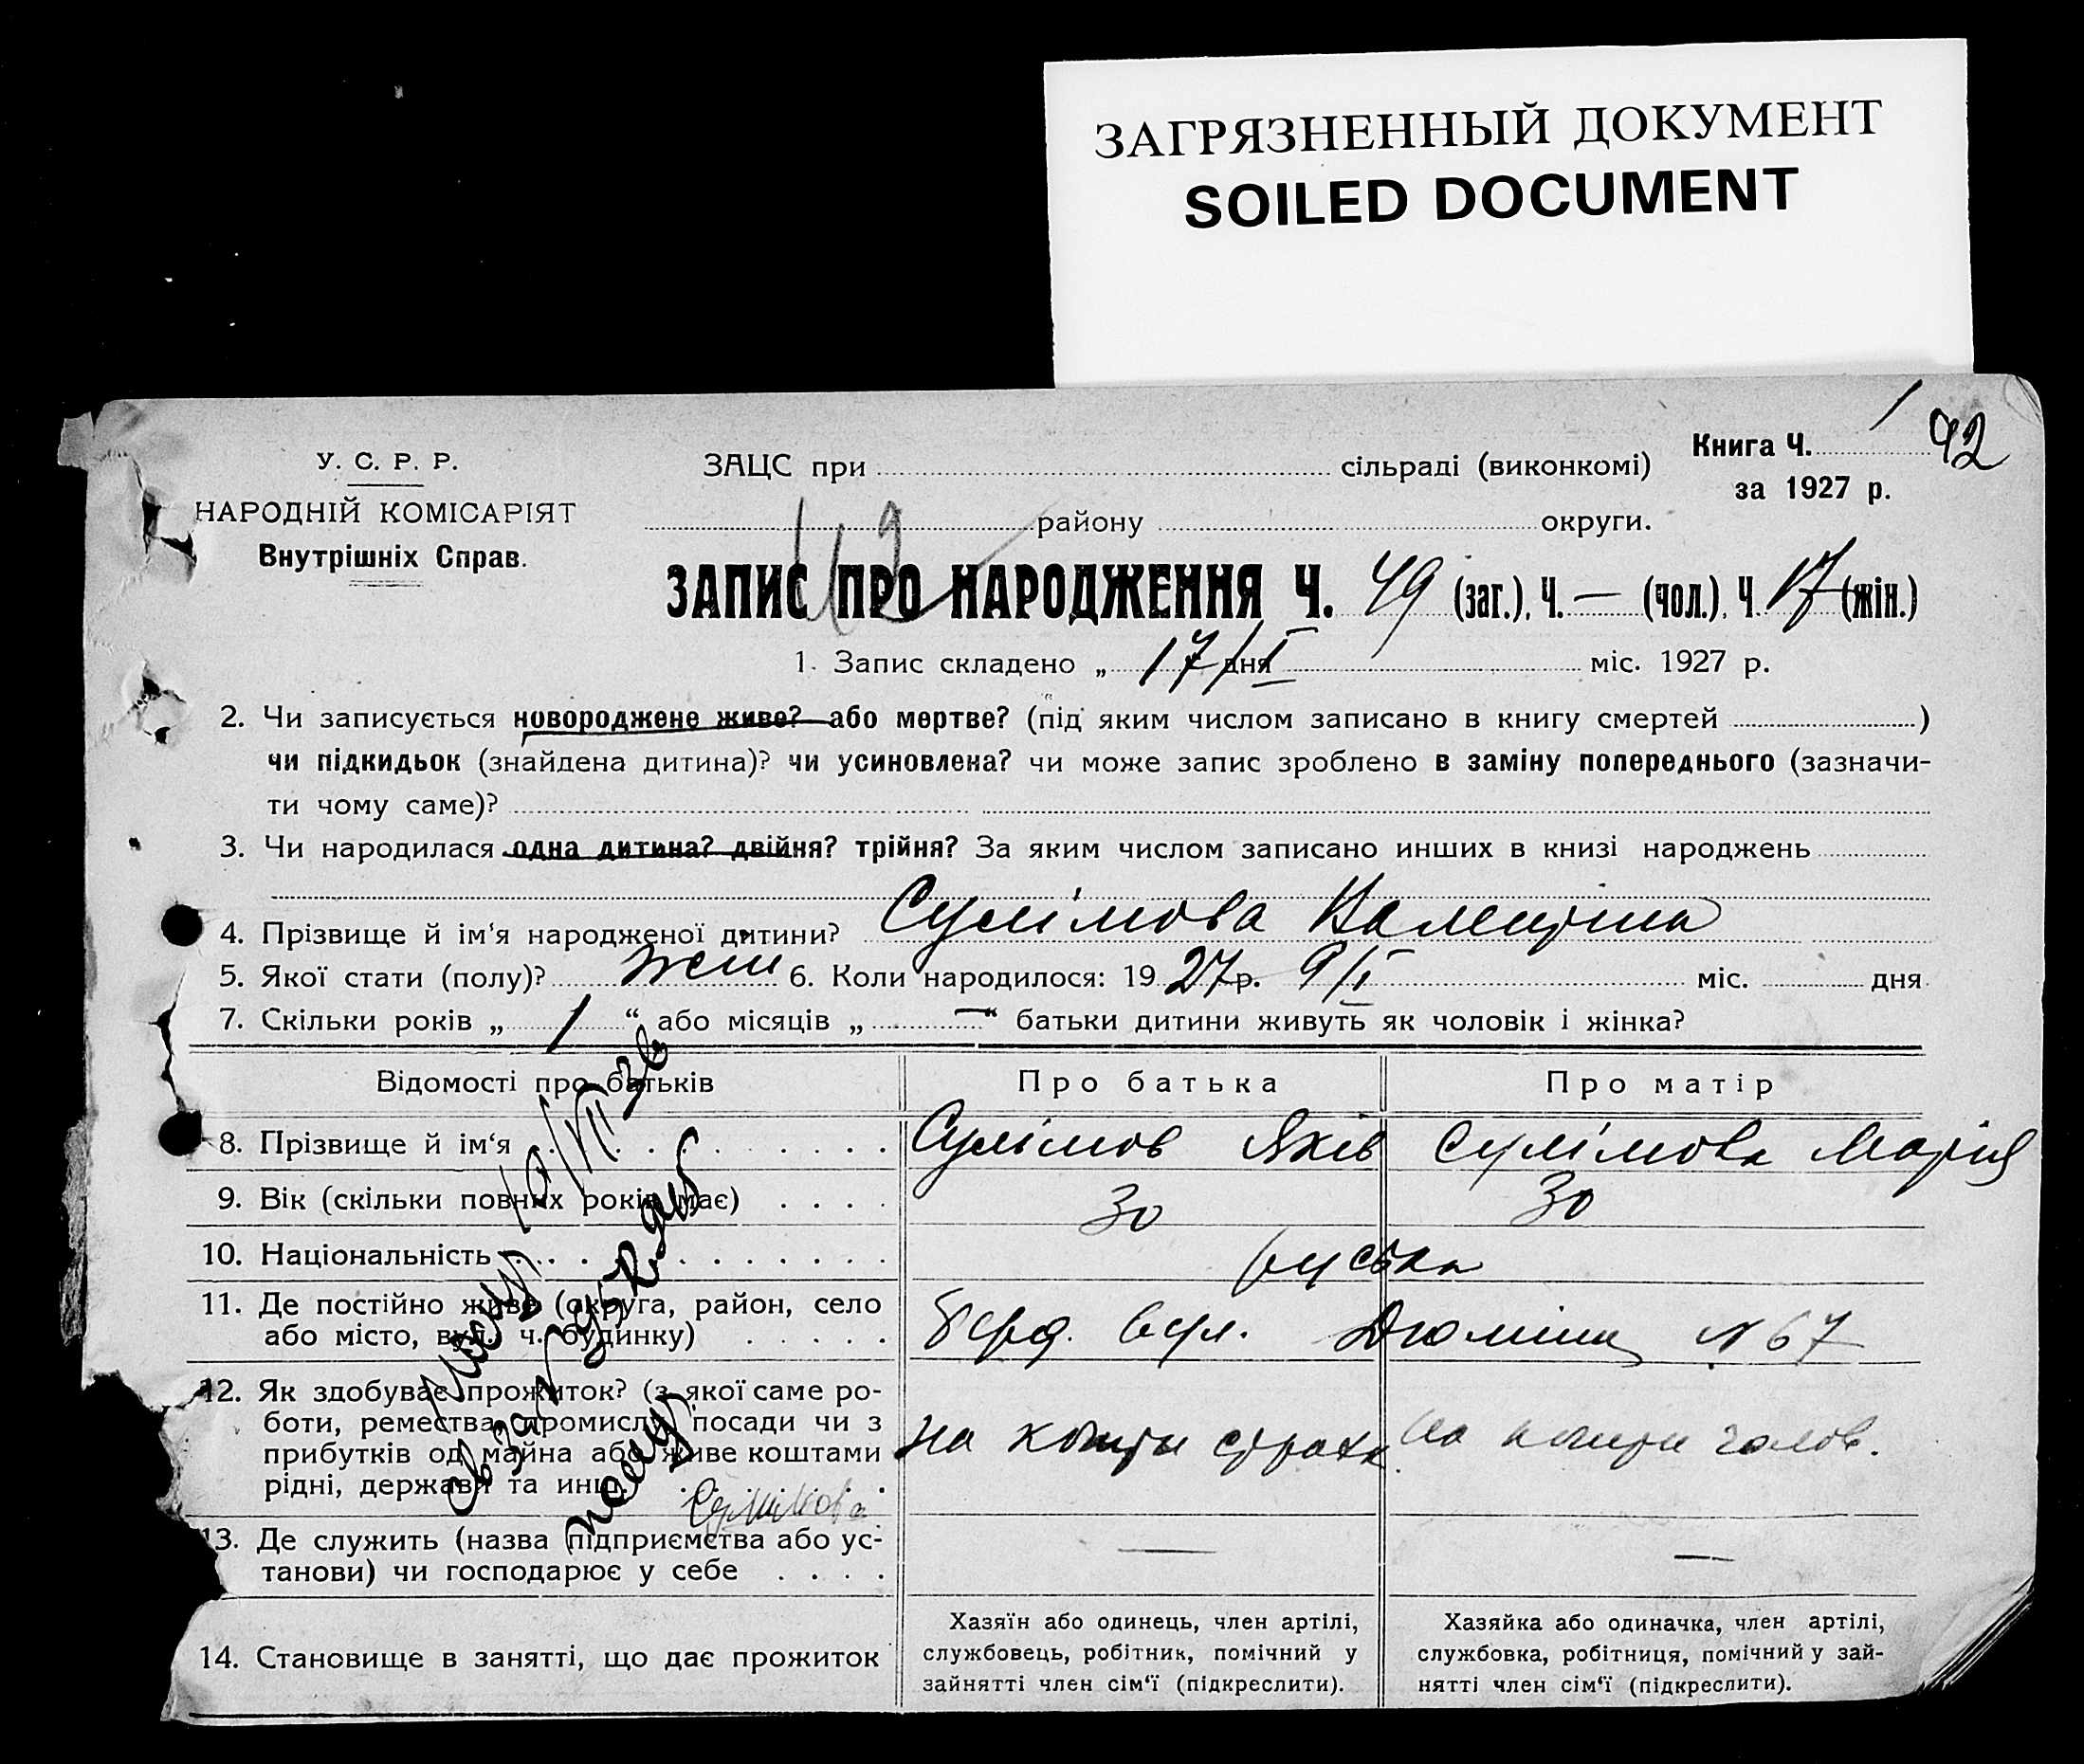 ЗАГРЯЗНЕННЫЙ ДОКУМЕНТ
SOILED DOCUMENT
У. С. Р. Р.
НАРОДНІЙ КОМІСАРІЯТ
Внутрішніх Справ.
ЗАЦС при сільраді (виконкомі)
району округи.
Книга Ч. 1 42
за 1927 р.
ЗАПИС ПРО НАРОДЖЕННЯ Ч. 49 (заг.), Ч. — (чол.), Ч. 17 (жін.)
1. Запис складено „ 17/I дня міс. 1927 р.
2. Чи записується новороджене живе? або мертве? (під яким числом записано в книгу смертей )
чи підкидьок (знайдена дитина)? чи усиновлена? чи може запис зроблено в заміну попереднього (зазначи-
ти чому саме)?
3. Чи народилася одна дитина? двійня? трійня? За яким числом записано инших в книзі народжень
4. Прізвище й ім'я народженої дитини? Сулімова Валентина
5. Якої стати (полу)? жен 6. Коли народилося: 19 27 р. 9/I міс. дня
7. Скільки років „ 1 “ або місяців „ — “ батьки дитини живуть як чоловік і жінка?
Відомості про батьків Про батька Про матір
8. Прізвище й ім'я Сулімов Яків Сулімова Марія
9. Вік (скільки повних років має) 30 30
10. Національність руська
11. Де постійно живе (округа, район, село
або місто, вул. ч. будинку) Берд. вул. Дюміна N 67
12. Як здобуває прожиток? (з якої саме ро-
боти, ремества, промислу, посади чи з
прибутків од майна або живе коштами
рідні, держави та инш. на кошти страхк. на кошти чолов.
Сулімова
13. Де служить (назва підприємства або ус-
танови) чи господарює у себе — —
14. Становище в занятті, що дає прожиток
Хазяїн або одинець, член артілі,
службовець, робітник, помічний у
зайнятті член сім'ї (підкреслити).
Хазяйка або одиначка, член артілі,
службовка, робітниця, помічний у зай-
нятті член сім'ї (підкреслити).